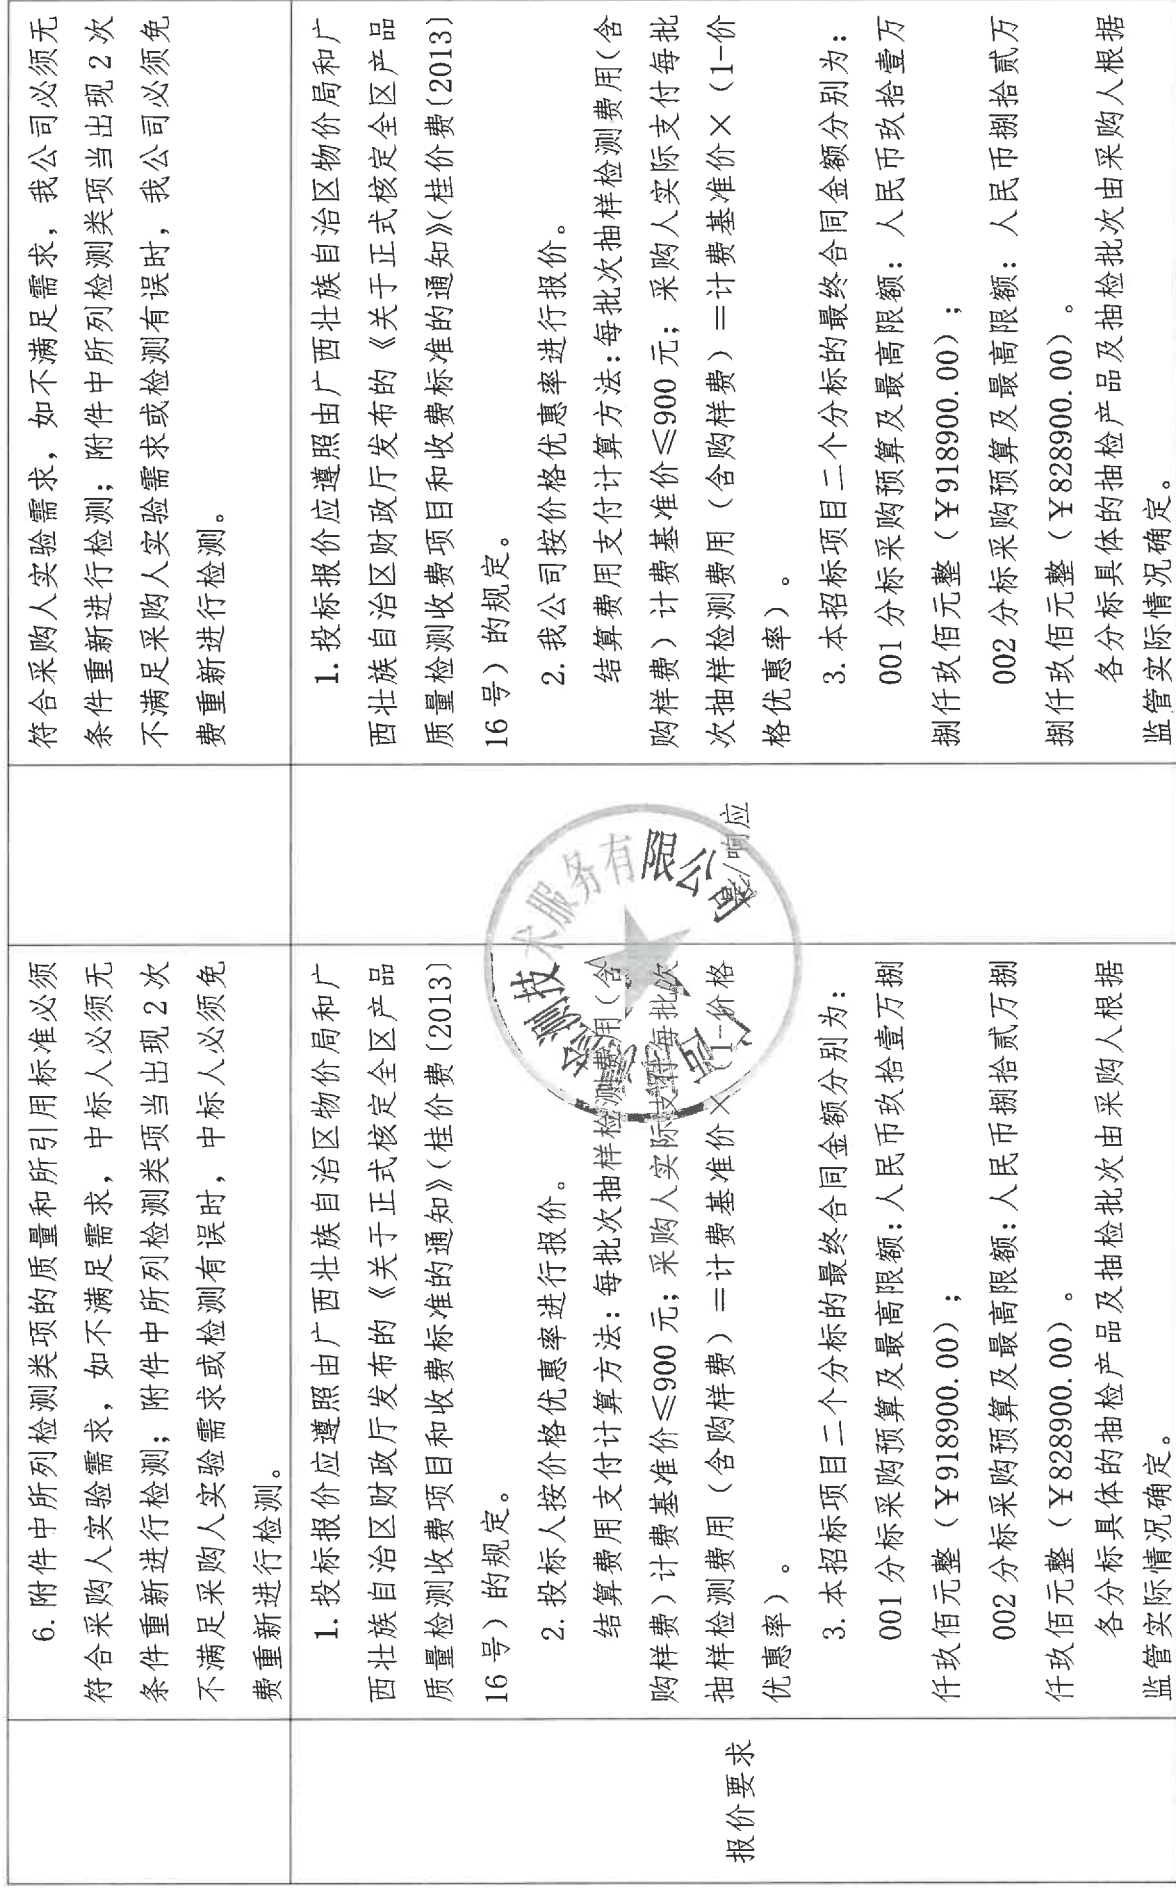 6.附件中所列检测类项的质量和所引用标准必须
符合采购人实验需求，如不满足需求，中标人必须无
条件重新进行检测；附件中所列检测类项当出现 2 次
不满足采购人实验需求或检测有误时，中标人必须免
费重新进行检测。
符合采购人实验需求，如不满足需求，我公司必须无
条件重新进行检测；附件中所列检测类项当出现 2 次
不满足采购人实验需求或检测有误时，我公司必须免
费重新进行检测。
报价要求
1.投标报价应遵照由广西壮族自治区物价局和广
西壮族自治区财政厅发布的《关于正式核定全区产品
质量检测收费项目和收费标准的通知》（桂价费〔2013〕
16 号）的规定。
2.投标人按价格优惠率进行报价。
结算费用支付计算方法：每批次抽样检测费用（含
购样费）计费基准价≤900 元；采购人实际支付每批次
抽样检测费用（含购样费）＝计费基准价×（1-价格
优惠率）。
3.本招标项目二个分标的最终合同金额分别为：
001 分标采购预算及最高限额：人民币玖拾壹万捌
仟玖佰元整（￥918900.00）；
002 分标采购预算及最高限额：人民币捌拾贰万捌
仟玖佰元整（￥828900.00）。
各分标具体的抽检产品及抽检批次由采购人根据
监管实际情况确定。
/响应
检测技术服务有限公司
1.投标报价应遵照由广西壮族自治区物价局和广
西壮族自治区财政厅发布的《关于正式核定全区产品
质量检测收费项目和收费标准的通知》（桂价费〔2013〕
16 号）的规定。
2.我公司按价格优惠率进行报价。
结算费用支付计算方法：每批次抽样检测费用（含
购样费）计费基准价≤900 元；采购人实际支付每批
次抽样检测费用（含购样费）＝计费基准价×（1-价
格优惠率）。
3.本招标项目二个分标的最终合同金额分别为：
001 分标采购预算及最高限额：人民币玖拾壹万
捌仟玖佰元整（￥918900.00）；
002 分标采购预算及最高限额：人民币捌拾贰万
捌仟玖佰元整（￥828900.00）。
各分标具体的抽检产品及抽检批次由采购人根据
监管实际情况确定。